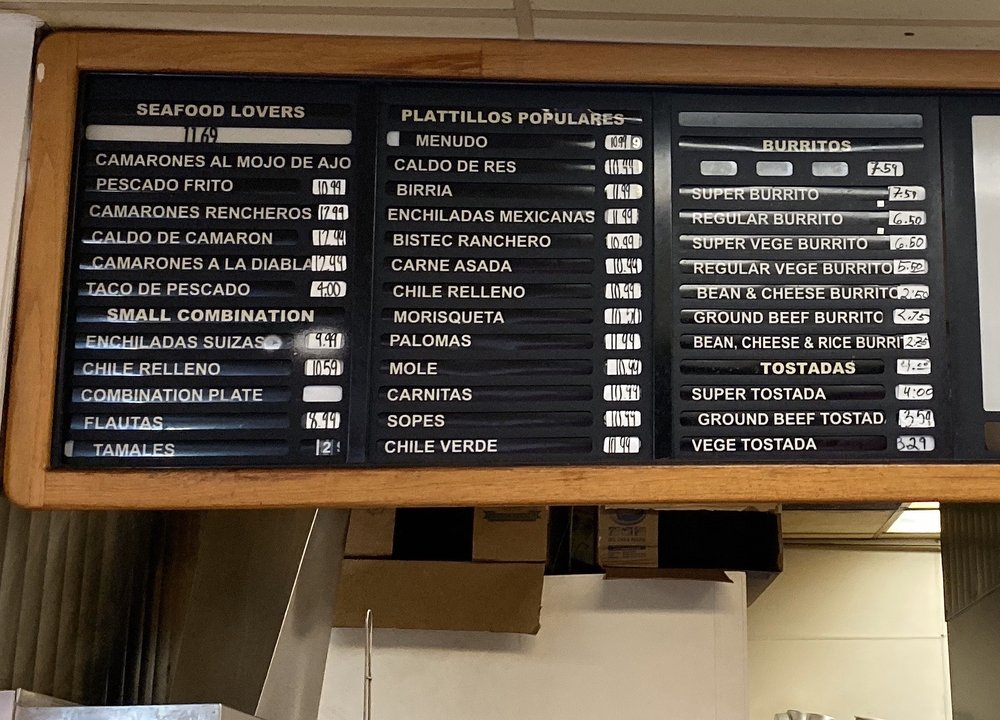 SEAFOOD LOVERS
11.69
CAMARONES AL MOJO DE AJO
PESCADO FRITO 10.99
CAMARONES RENCHEROS 12.99
CALDO DE CAMARON 12.99
CAMARONES A LA DIABLA 12.99
TACO DE PESCADO 4.00
SMALL COMBINATION
ENCHILADAS SUIZAS 9.99
CHILE RELLENO 10.59
COMBINATION PLATE
FLAUTAS
TAMALES 2
PLATTILLOS POPULARES
MENUDO
CALDO DE RES
BIRRIA 11.99
ENCHILADAS MEXICANAS 11.99
BISTEC RANCHERO 10.99
CARNE ASADA 10.99
CHILE RELLENO 10.99
MORISQUETA
PALOMAS 11.99
MOLE 10.99
CARNITAS 10.99
SOPES
CHILE VERDE 10.99
BURRITOS
7.59
SUPER BURRITO 7.59
REGULAR BURRITO 6.50
SUPER VEGE BURRITO 6.50
REGULAR VEGE BURRITO 5.50
BEAN & CHEESE BURRITO 2.50
GROUND BEEF BURRITO
BEAN, CHEESE & RICE BURRI 2.75
TOSTADAS 4.00
SUPER TOSTADA 4.00
GROUND BEEF TOSTAD 3.59
VEGE TOSTADA 3.29